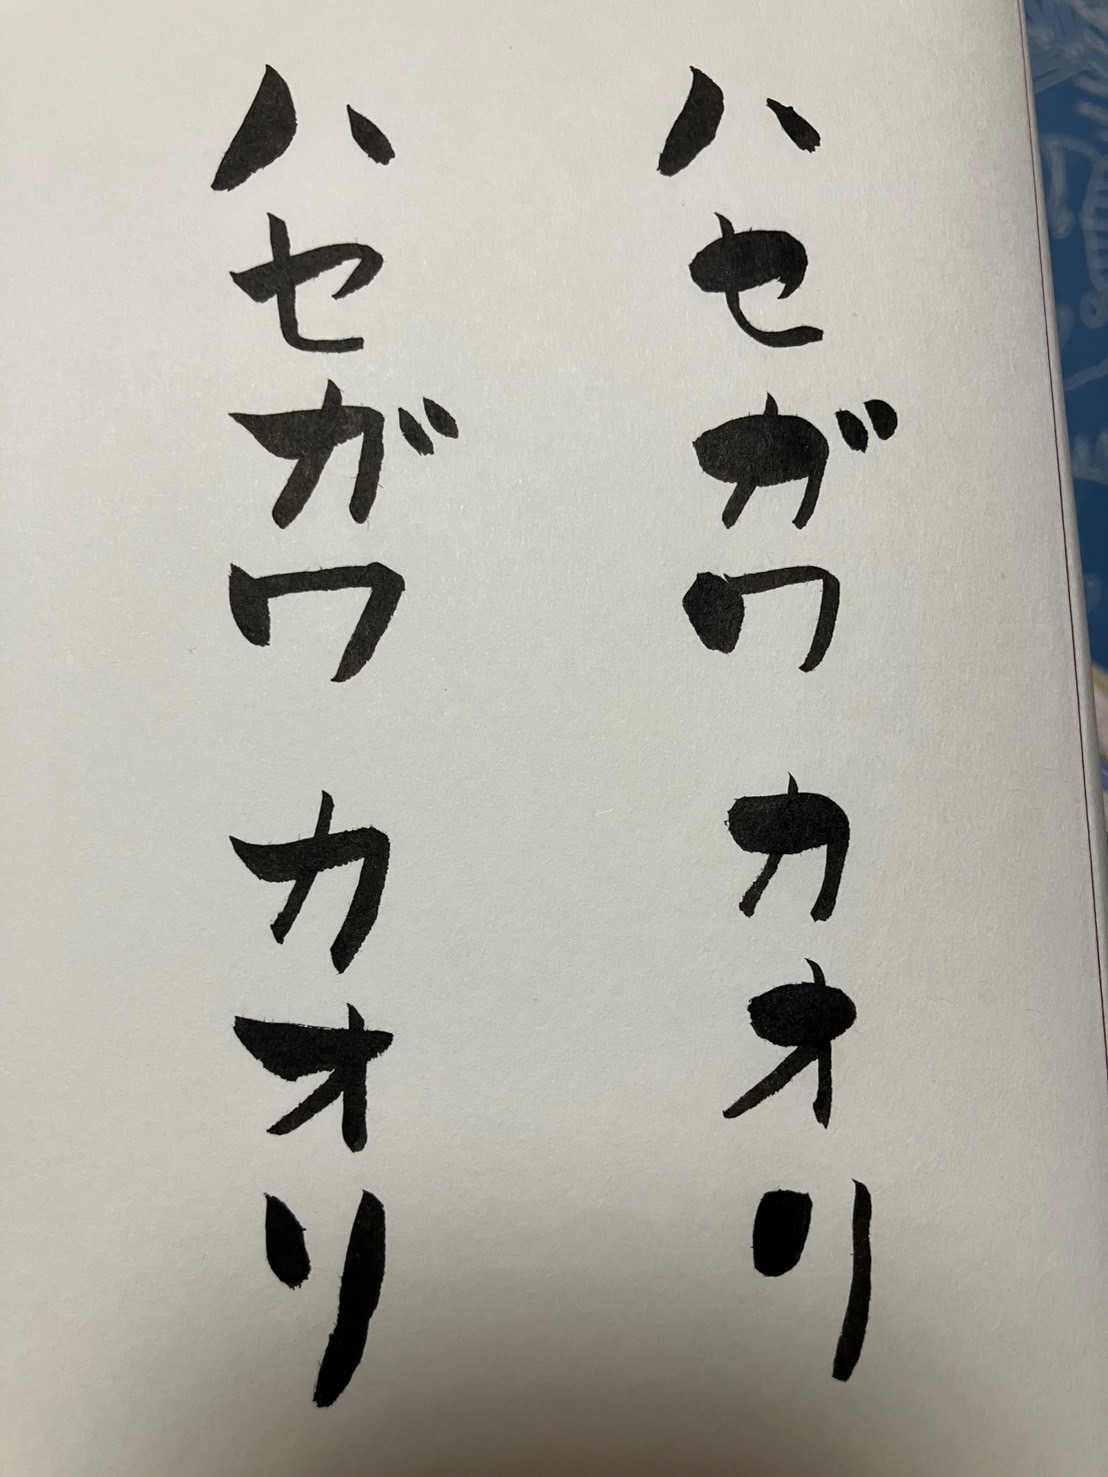 ハセガワ カオリ
ハセガワ カオリ